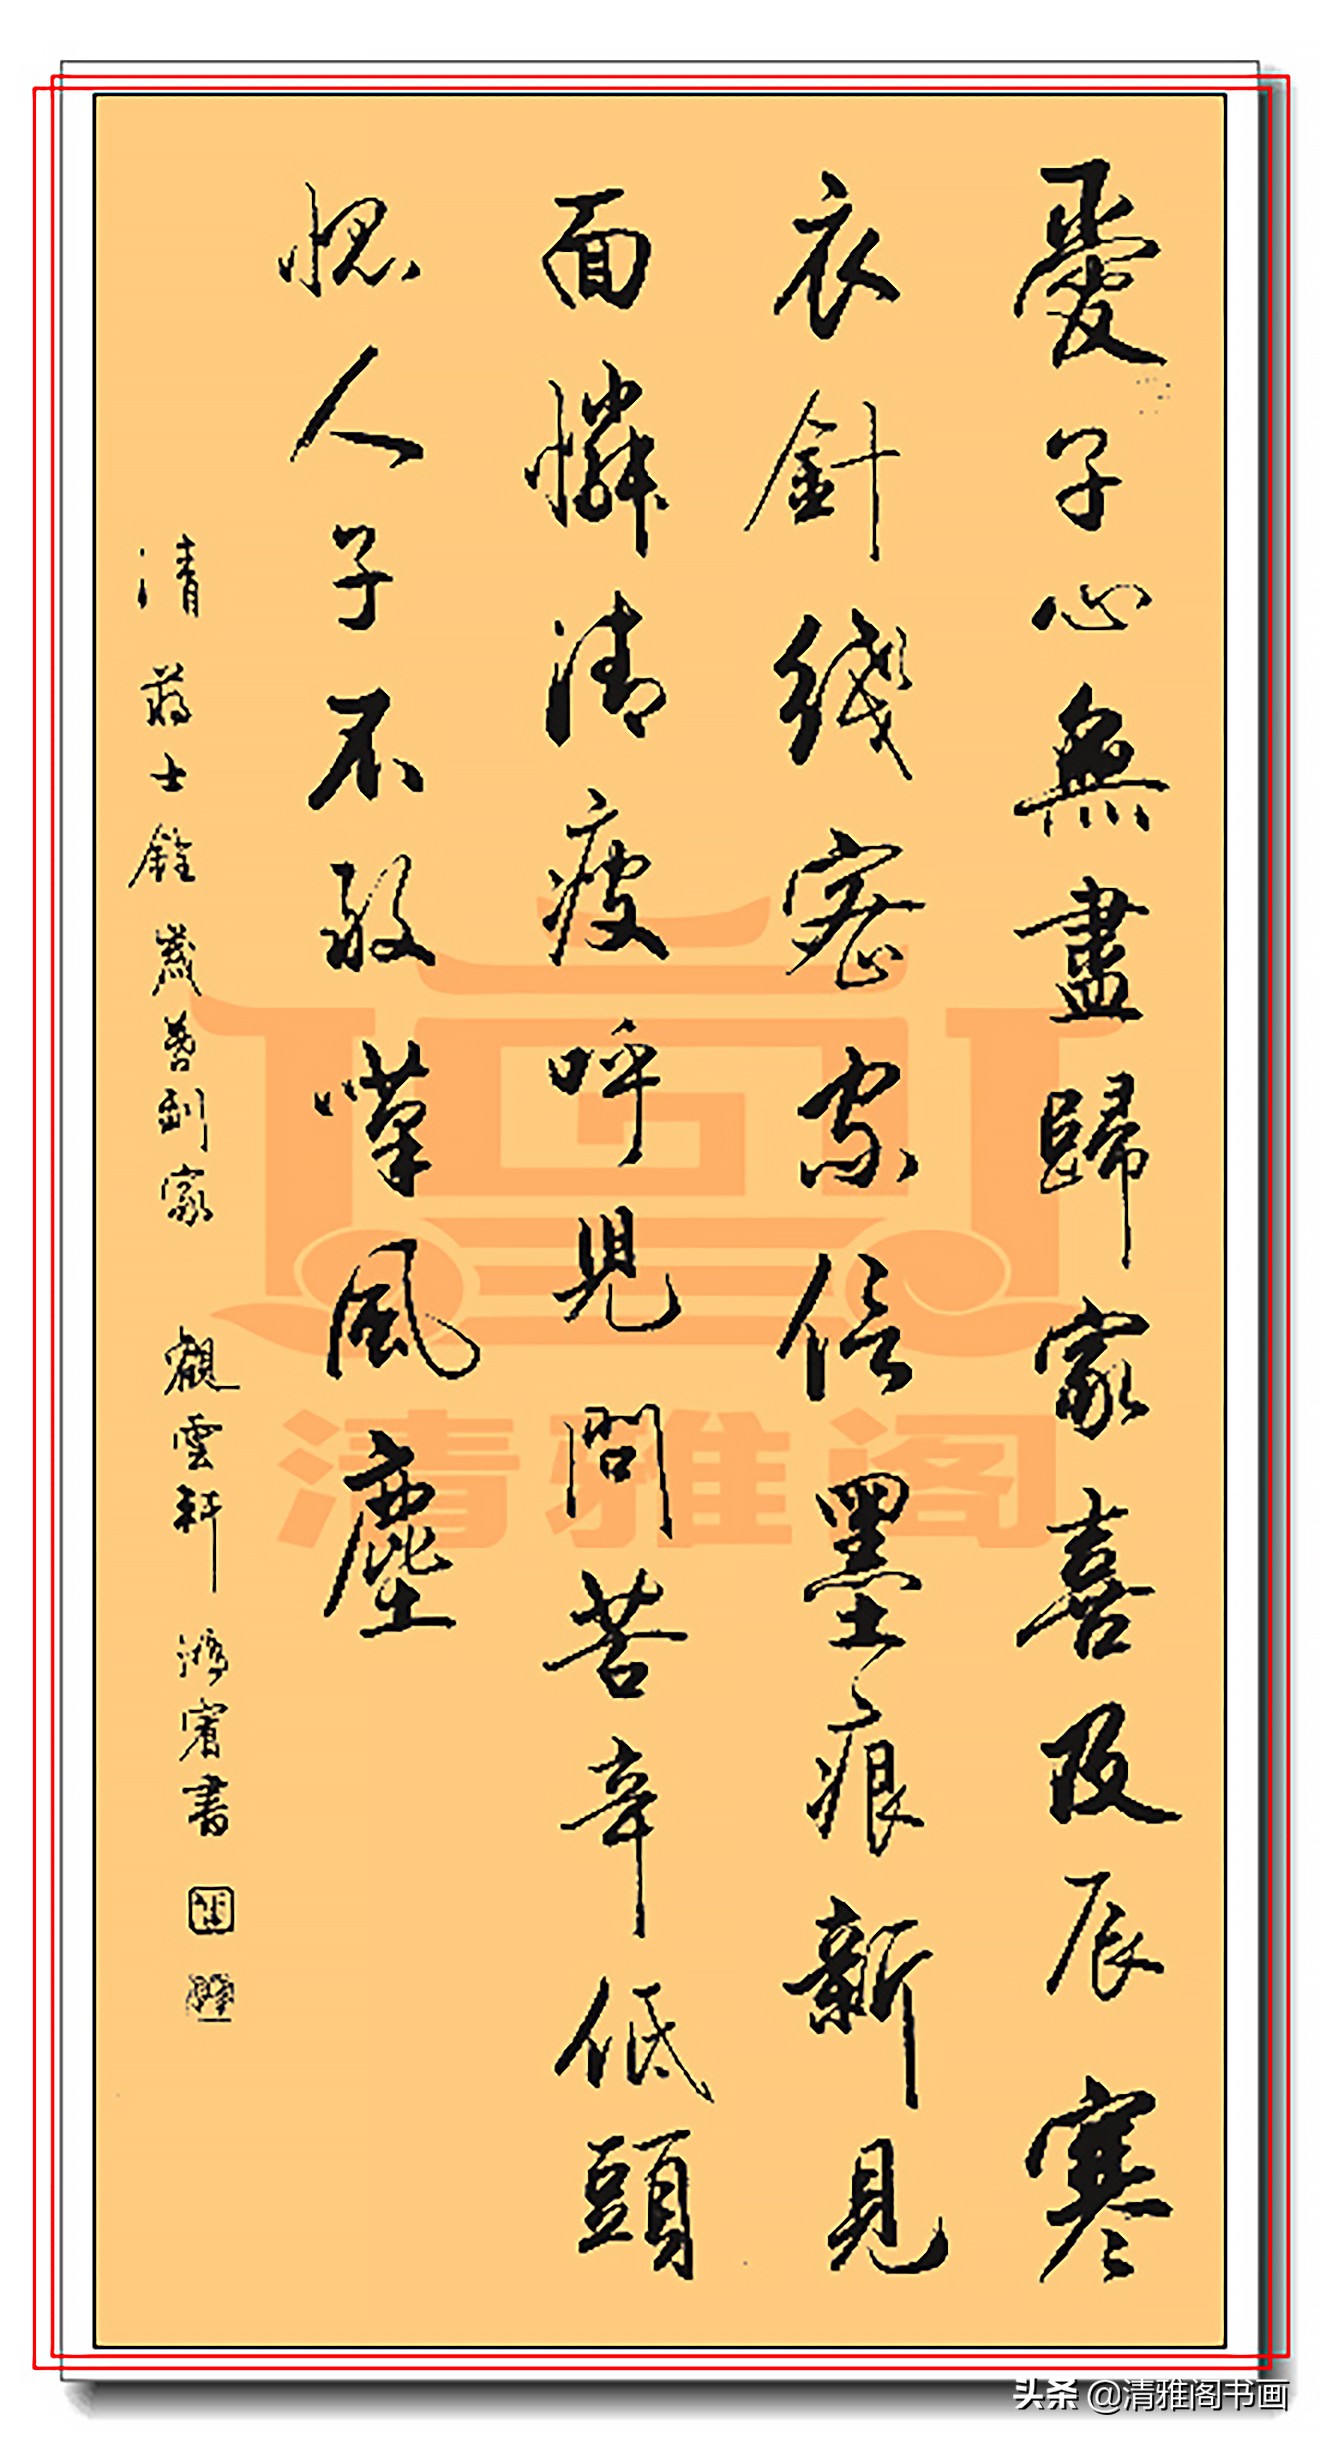 愛子心無盡歸家喜及辰寒
衣針綫密家信墨痕新見
面憐清瘦呼兒問苦辛低頭
愧人子不敢嘆風塵
清 蔣士銓 歲暮到家 觀雲軒 鴻賓書
清雅阁
头条 @清雅阁书画